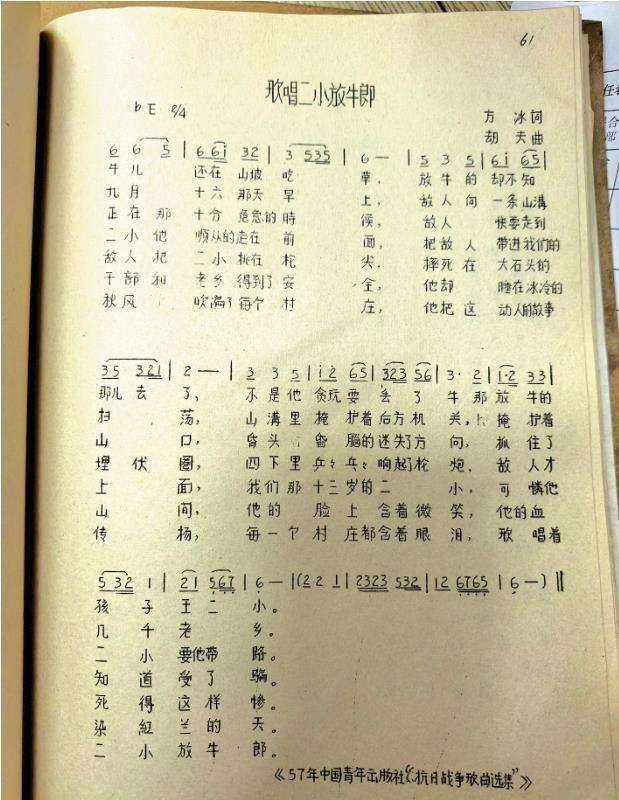 61
歌唱二小放牛郎
bE 2/4
方 冰词
胡 夫曲
6 6 5 | 6 6 i 3 2 | 3 5 3 5 | 6 — | 5 3 5 | 6 i 6 5 |
牛儿 还在 山坡 吃 草, 放牛的 却不知
九月 十六 那天 早 上, 敌人向 一条山沟
正在那 十分 危急的时 候, 敌人 快要走到
二小他 顺从的走在 前 面, 把敌人 带进我们的
敌人把 二小 挑在 枪 尖, 摔死在 大石头的
干部和 老乡 得到了 安 全, 他却 睡在冰冷的
秋风 吹满了每个 村 庄, 他把这 动人的故事
3 5 3 2 1 | 2 — | 3 3 5 | i 2 6 5 | 3 2 3 5 6 | 3 · 2 | 1 · 2 3 3 |
那儿去 了, 不是他 贪玩耍 丢 了 牛那 放牛的
扫 荡, 山沟里 掩 护着后方机 关, 掩 护着
山 口, 昏头 昏 脑的迷失了方 向, 抓 住了
埋伏 圈, 四下里 乒乒乓乓响起了枪 炮, 敌人才
上 面, 我们那 十三岁的二 小, 可 怜他
山 间, 他的 脸上 含着微 笑, 他的血
传 扬, 每一个 村庄都含着眼 泪, 歌 唱着
5 3 2 1 | 2 1 5 6 7 | 6 — | (2 2 1 | 2 3 2 3 5 3 2 | 1 2 6 7 6 5 | 6 —) ‖
孩 子 王 二 小。
几 千 老 乡。
二 小 要他带 路。
知 道 受 了 骗。
死 得 这 样 惨。
染 红 兰 的 天。
二 小 放 牛 郎。
《57年中国青年出版社“抗日战争歌曲选集”》